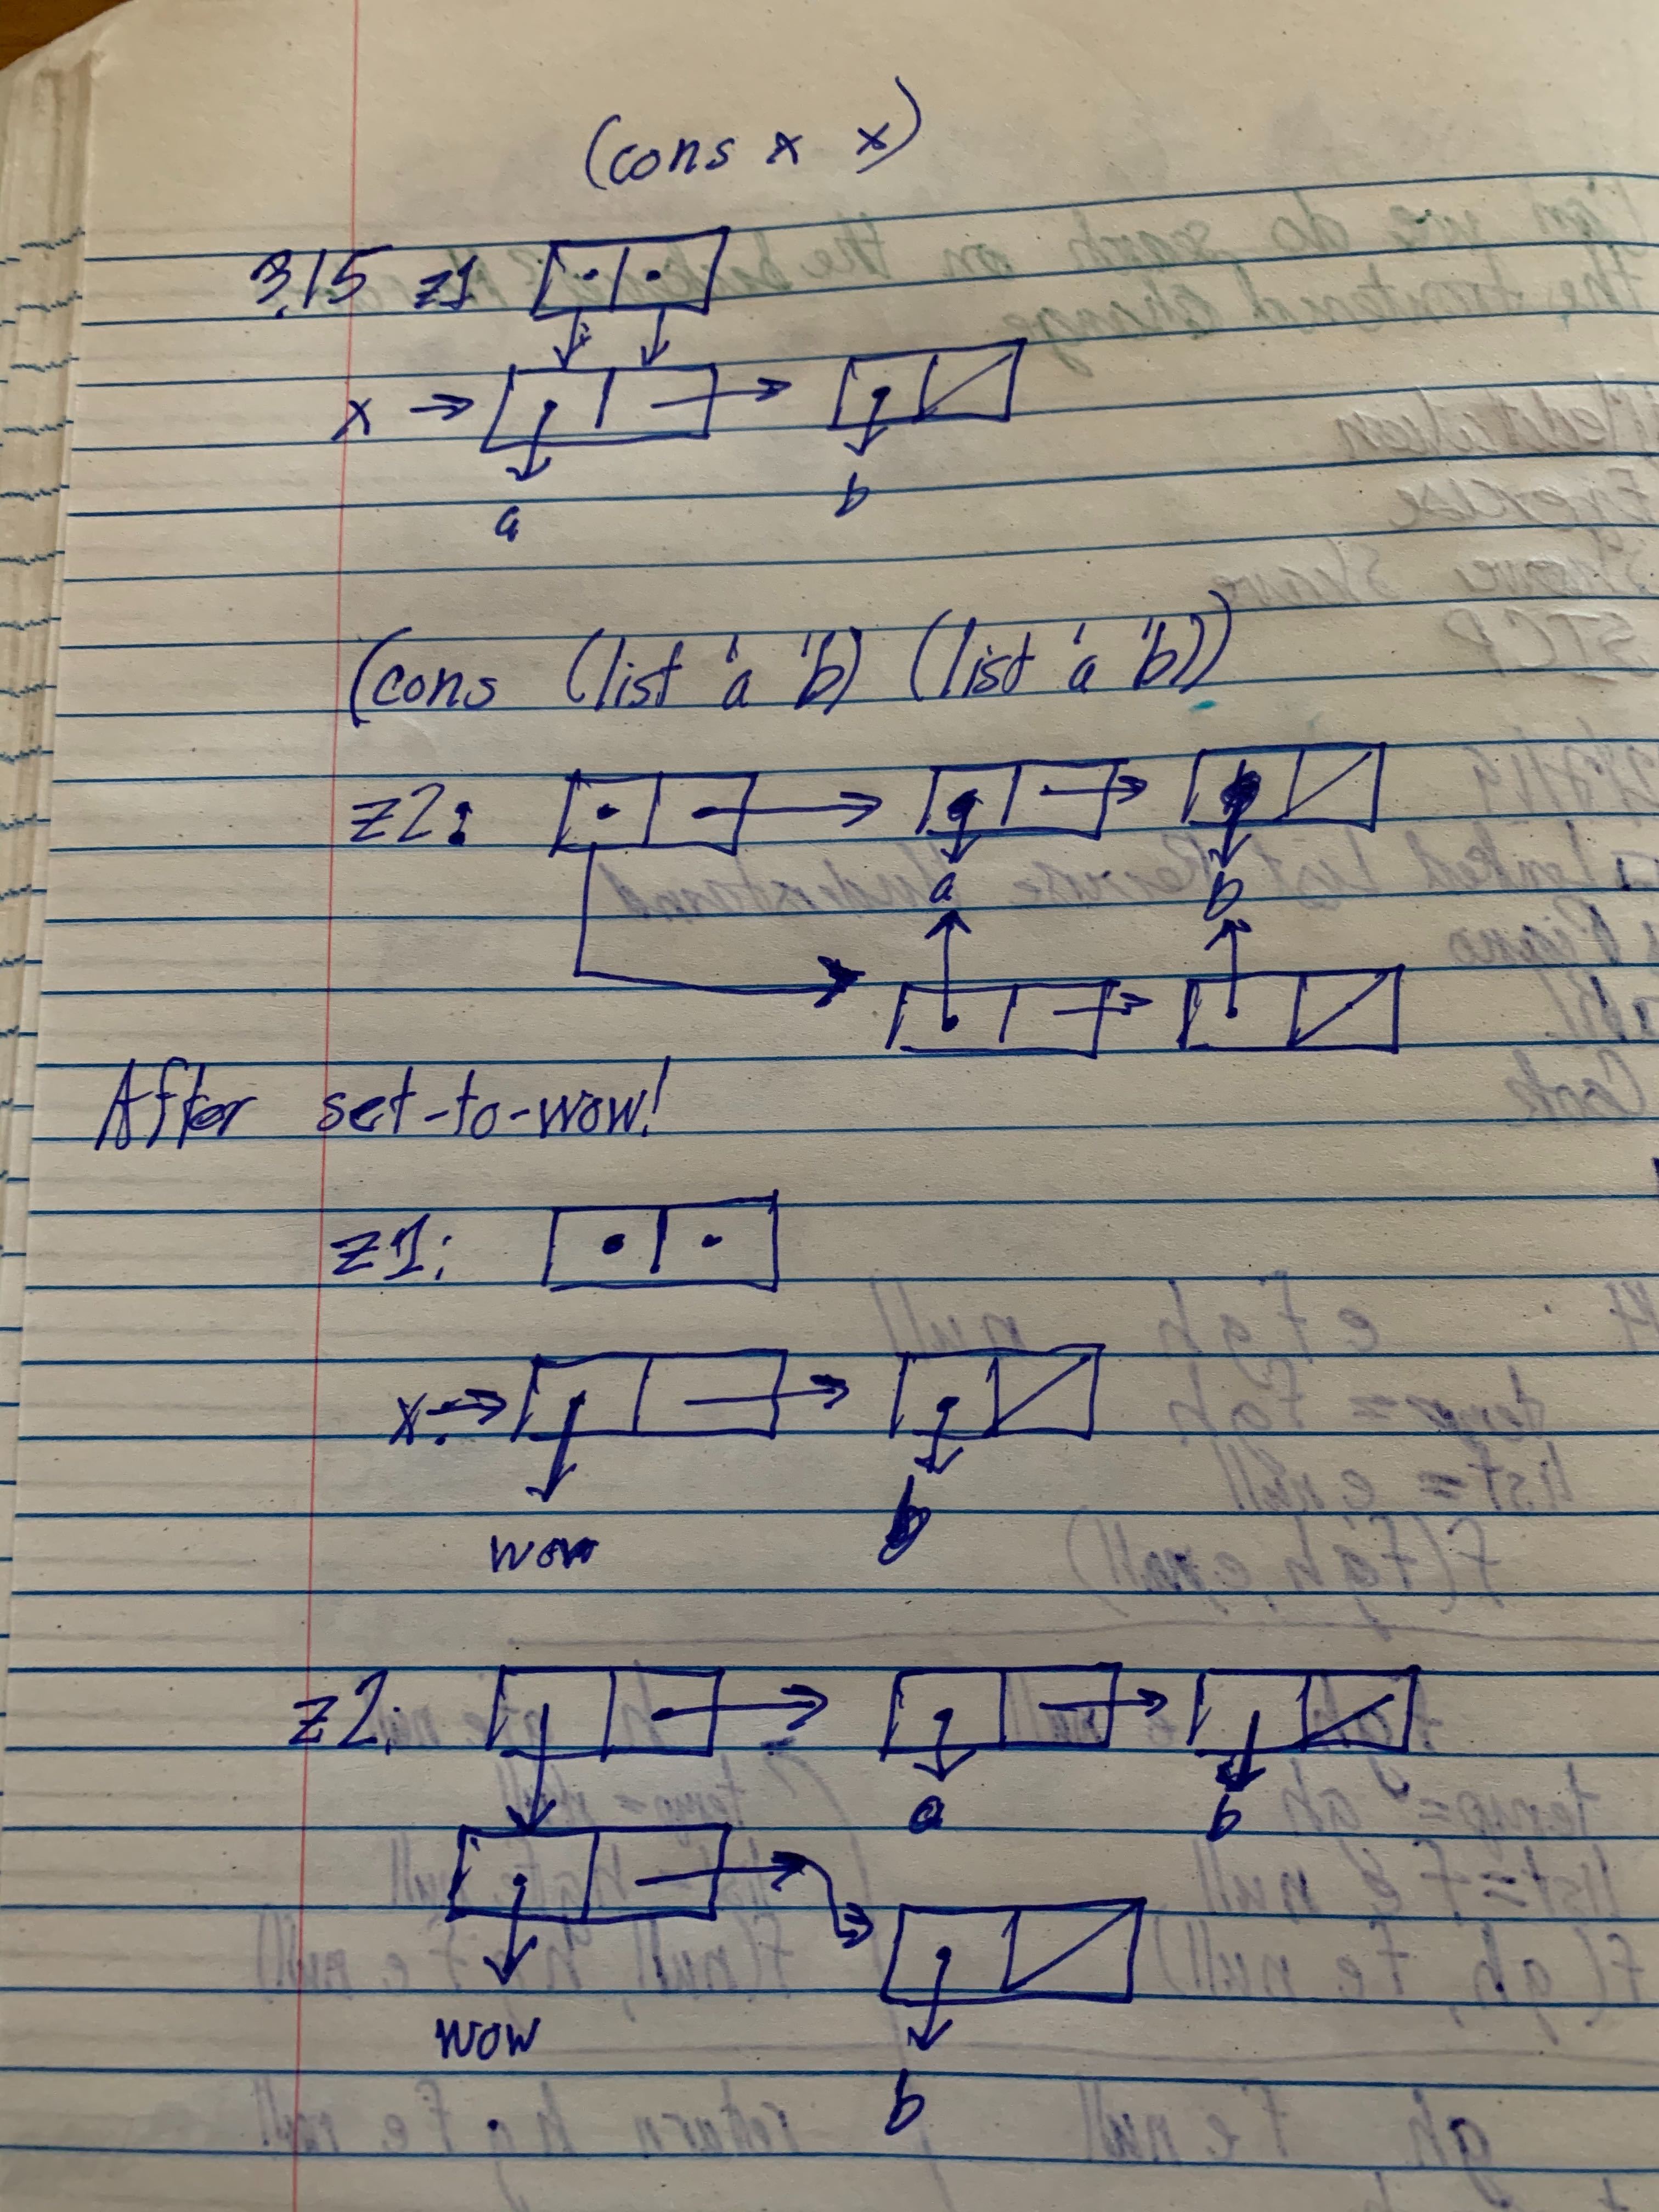 (cons x x)
3.15 z1
x
a b
(cons (list 'a 'b) (list 'a 'b))
z2:
a b
After set-to-wow!
z1:
x:
wow b
z2:
a b
wow
b